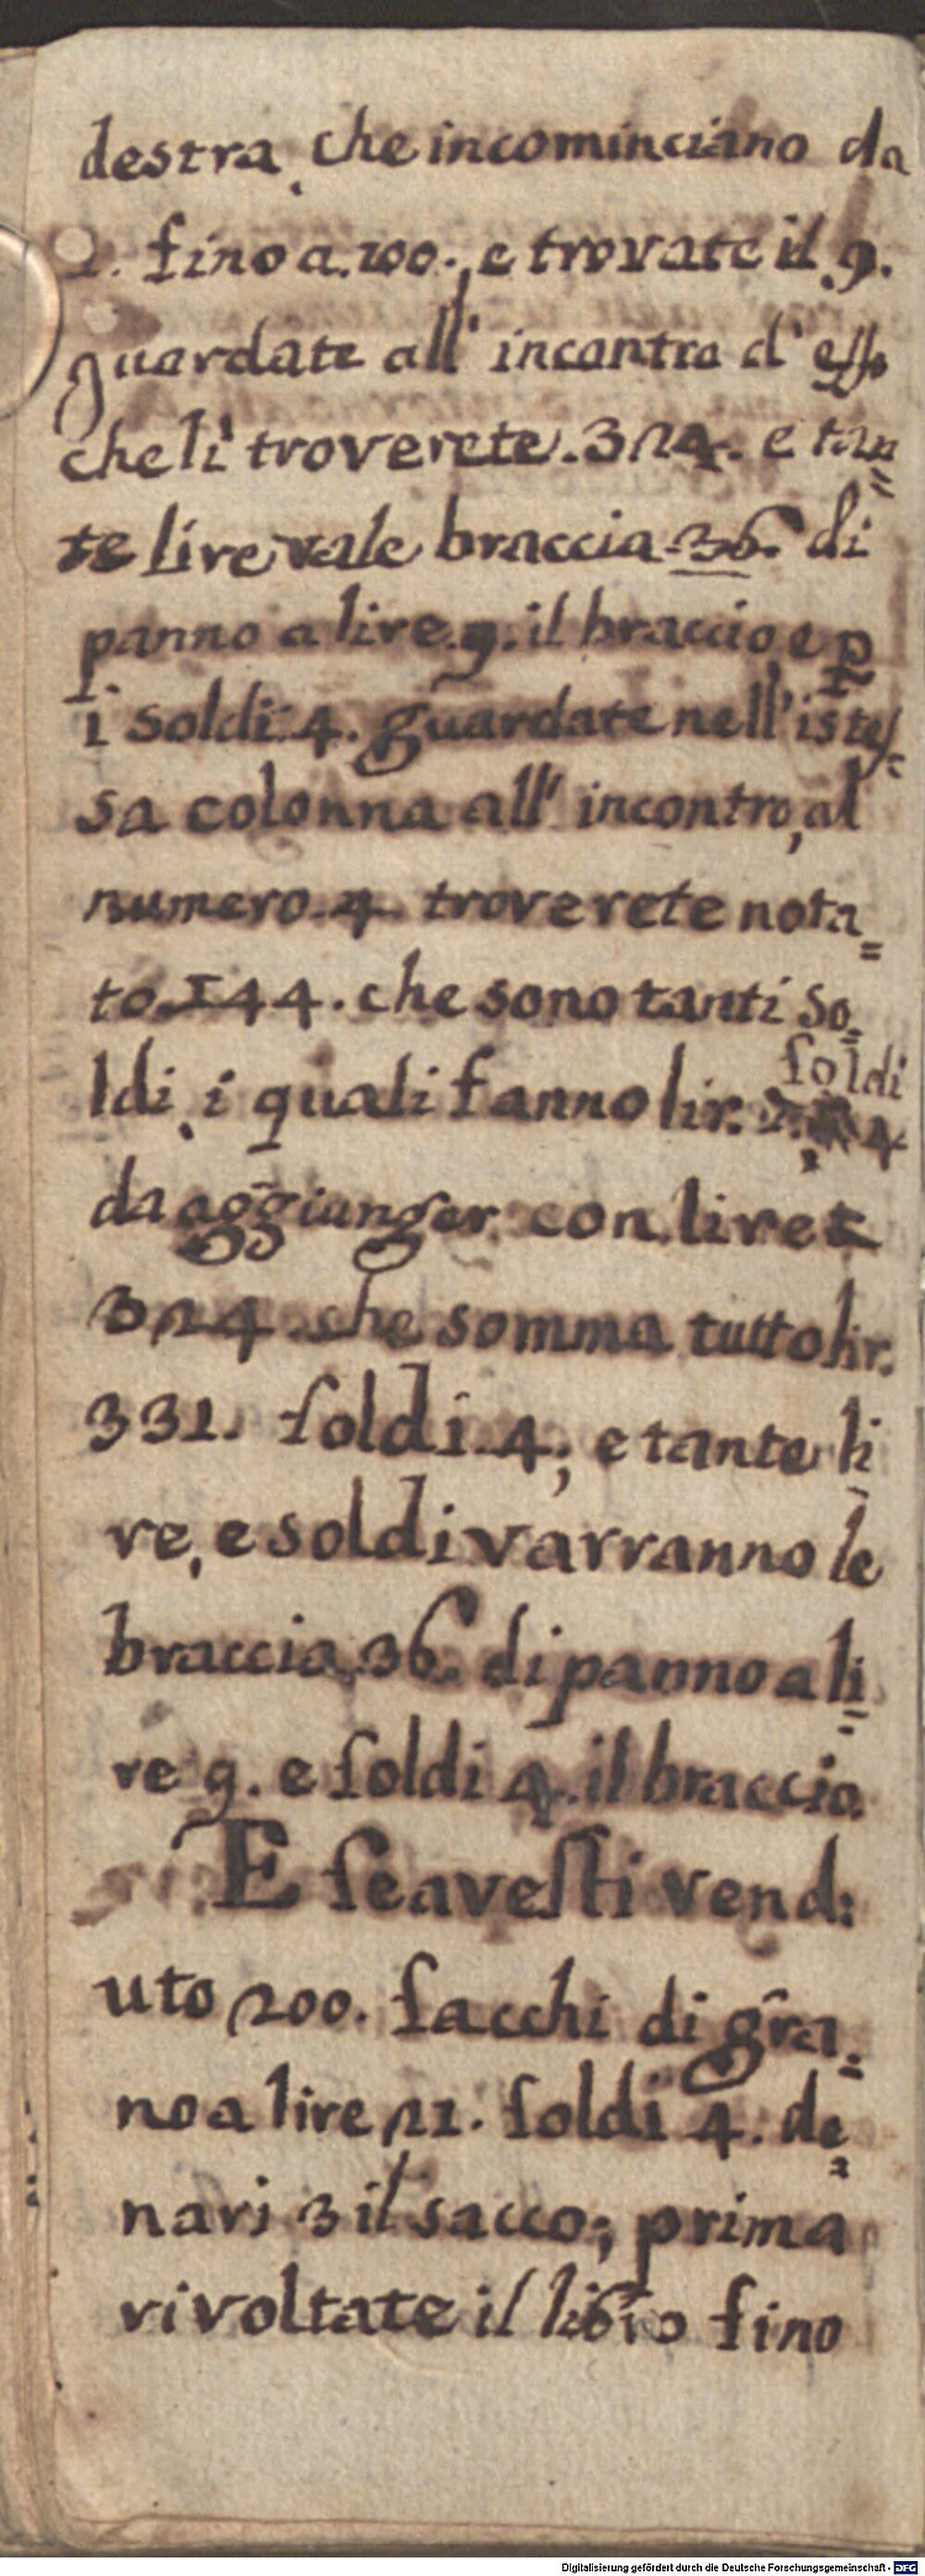 destra, che incominciano da
1. fino a. 100., e trovate il .9.
guardate all' incontra d' esso
che li troverete. 324. e tan=
te lire vale braccia 36. di
panno a lire. 9. il braccio, e p
i soldi 4. guardate nell' istes=
sa colonna all' incontro, al
numero. 4. troverete nota=
to. 144. che sono tanti so=
ldi, i quali fanno lir. 7. soldi 4
da aggiunger con lire
324. che somma tutto lir.
331. soldi. 4; e tante li
re, e soldi varranno le
braccia 36. di panno a li=
re 9. e soldi 4. il braccio.
E se avesti vend:
uto 200. sacchi di gra=
no a lire 21. soldi 4. de=
nari 3 il sacco; prima
rivoltate il libro fino
Digitalisierung gefördert durch die Deutsche Forschungsgemeinschaft - DFG